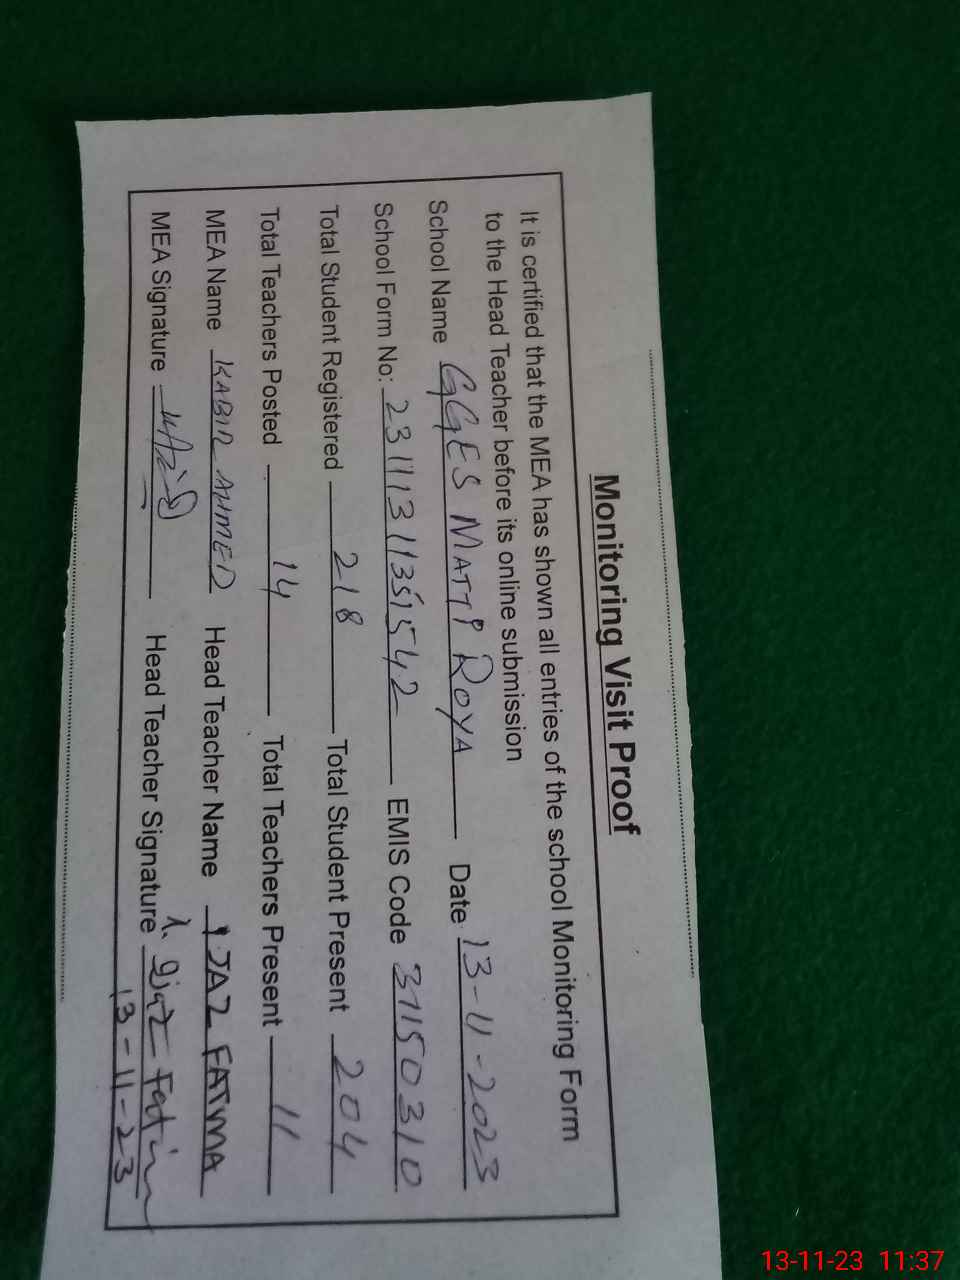 Monitoring Visit Proof
It is certified that the MEA has shown all entries of the school Monitoring Form
to the Head Teacher before its online submission
School Name GGES MATTI ROYA Date 13-11-2023
School Form No: 23111311351542 EMIS Code 37150310
Total Student Registered 218 Total Student Present 204
Total Teachers Posted 14 Total Teachers Present 11
MEA Name KABIR AHMED Head Teacher Name IJAZ FATMA
MEA Signature Head Teacher Signature Ijaz Fatim
13-11-23
13-11-23 11:37